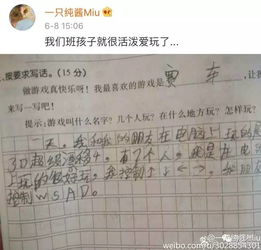 一只纯酱Miu
6-8 15:06
我们班孩子就很活泼爱玩了...
按要求写话。(15分)
做游戏真快乐呀!我最喜欢的游戏是赛车
来写一写吧!
提示:游戏叫什么名字?几个人玩?在什么地方玩?怎样玩?
一天,我和我的朋友在电脑上玩的是
3D超级漂移4。有了个人。我是在电脑
上玩的很好玩。我控制↑↓←→。我
控制WSAD。
weibo.com/u/3028854301